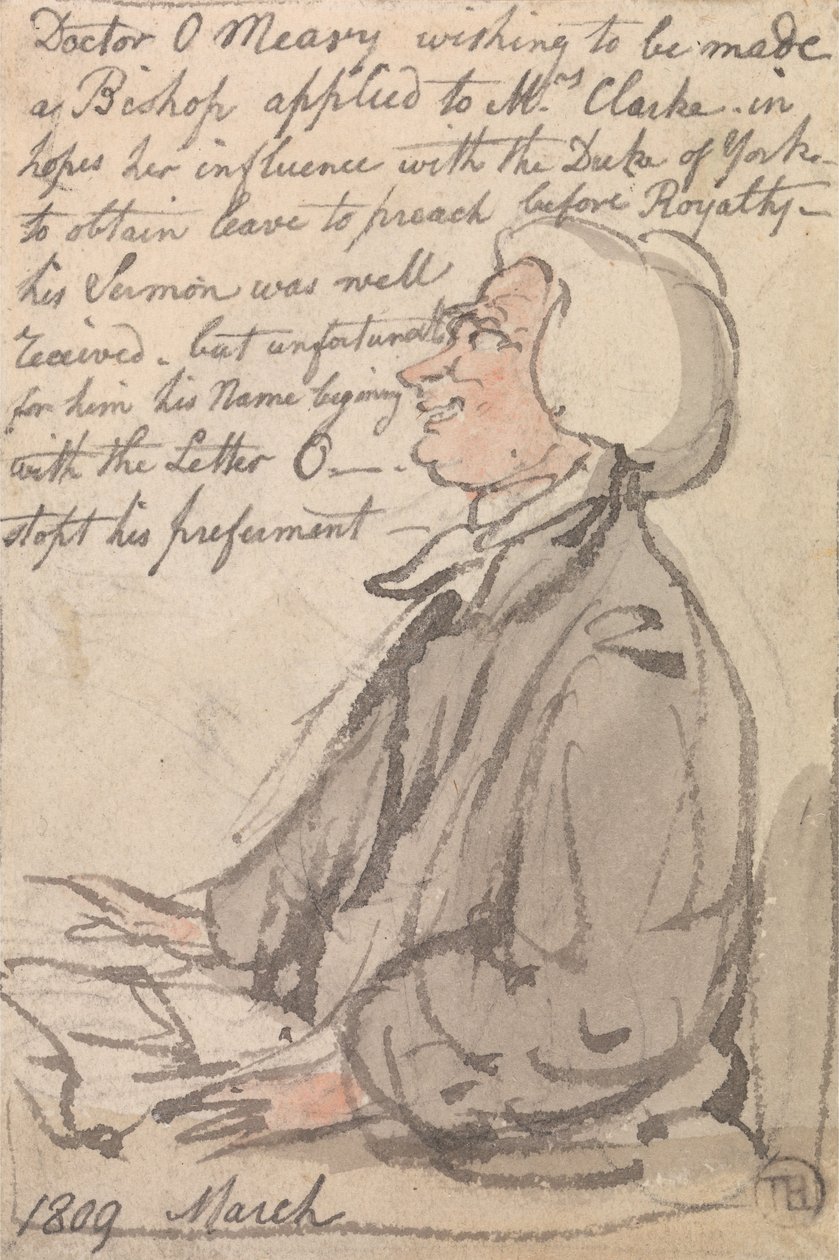 Doctor O Meary wishing to be made
a Bishop applied to Mrs Clarke - in
hopes her influence with the Duke of York -
to obtain leave to preach before Royalty -
his Sermon was well
received - but unfortunat
for him his Name begining
with the Letter O - .
stopt his preferment -
1809 March
TH